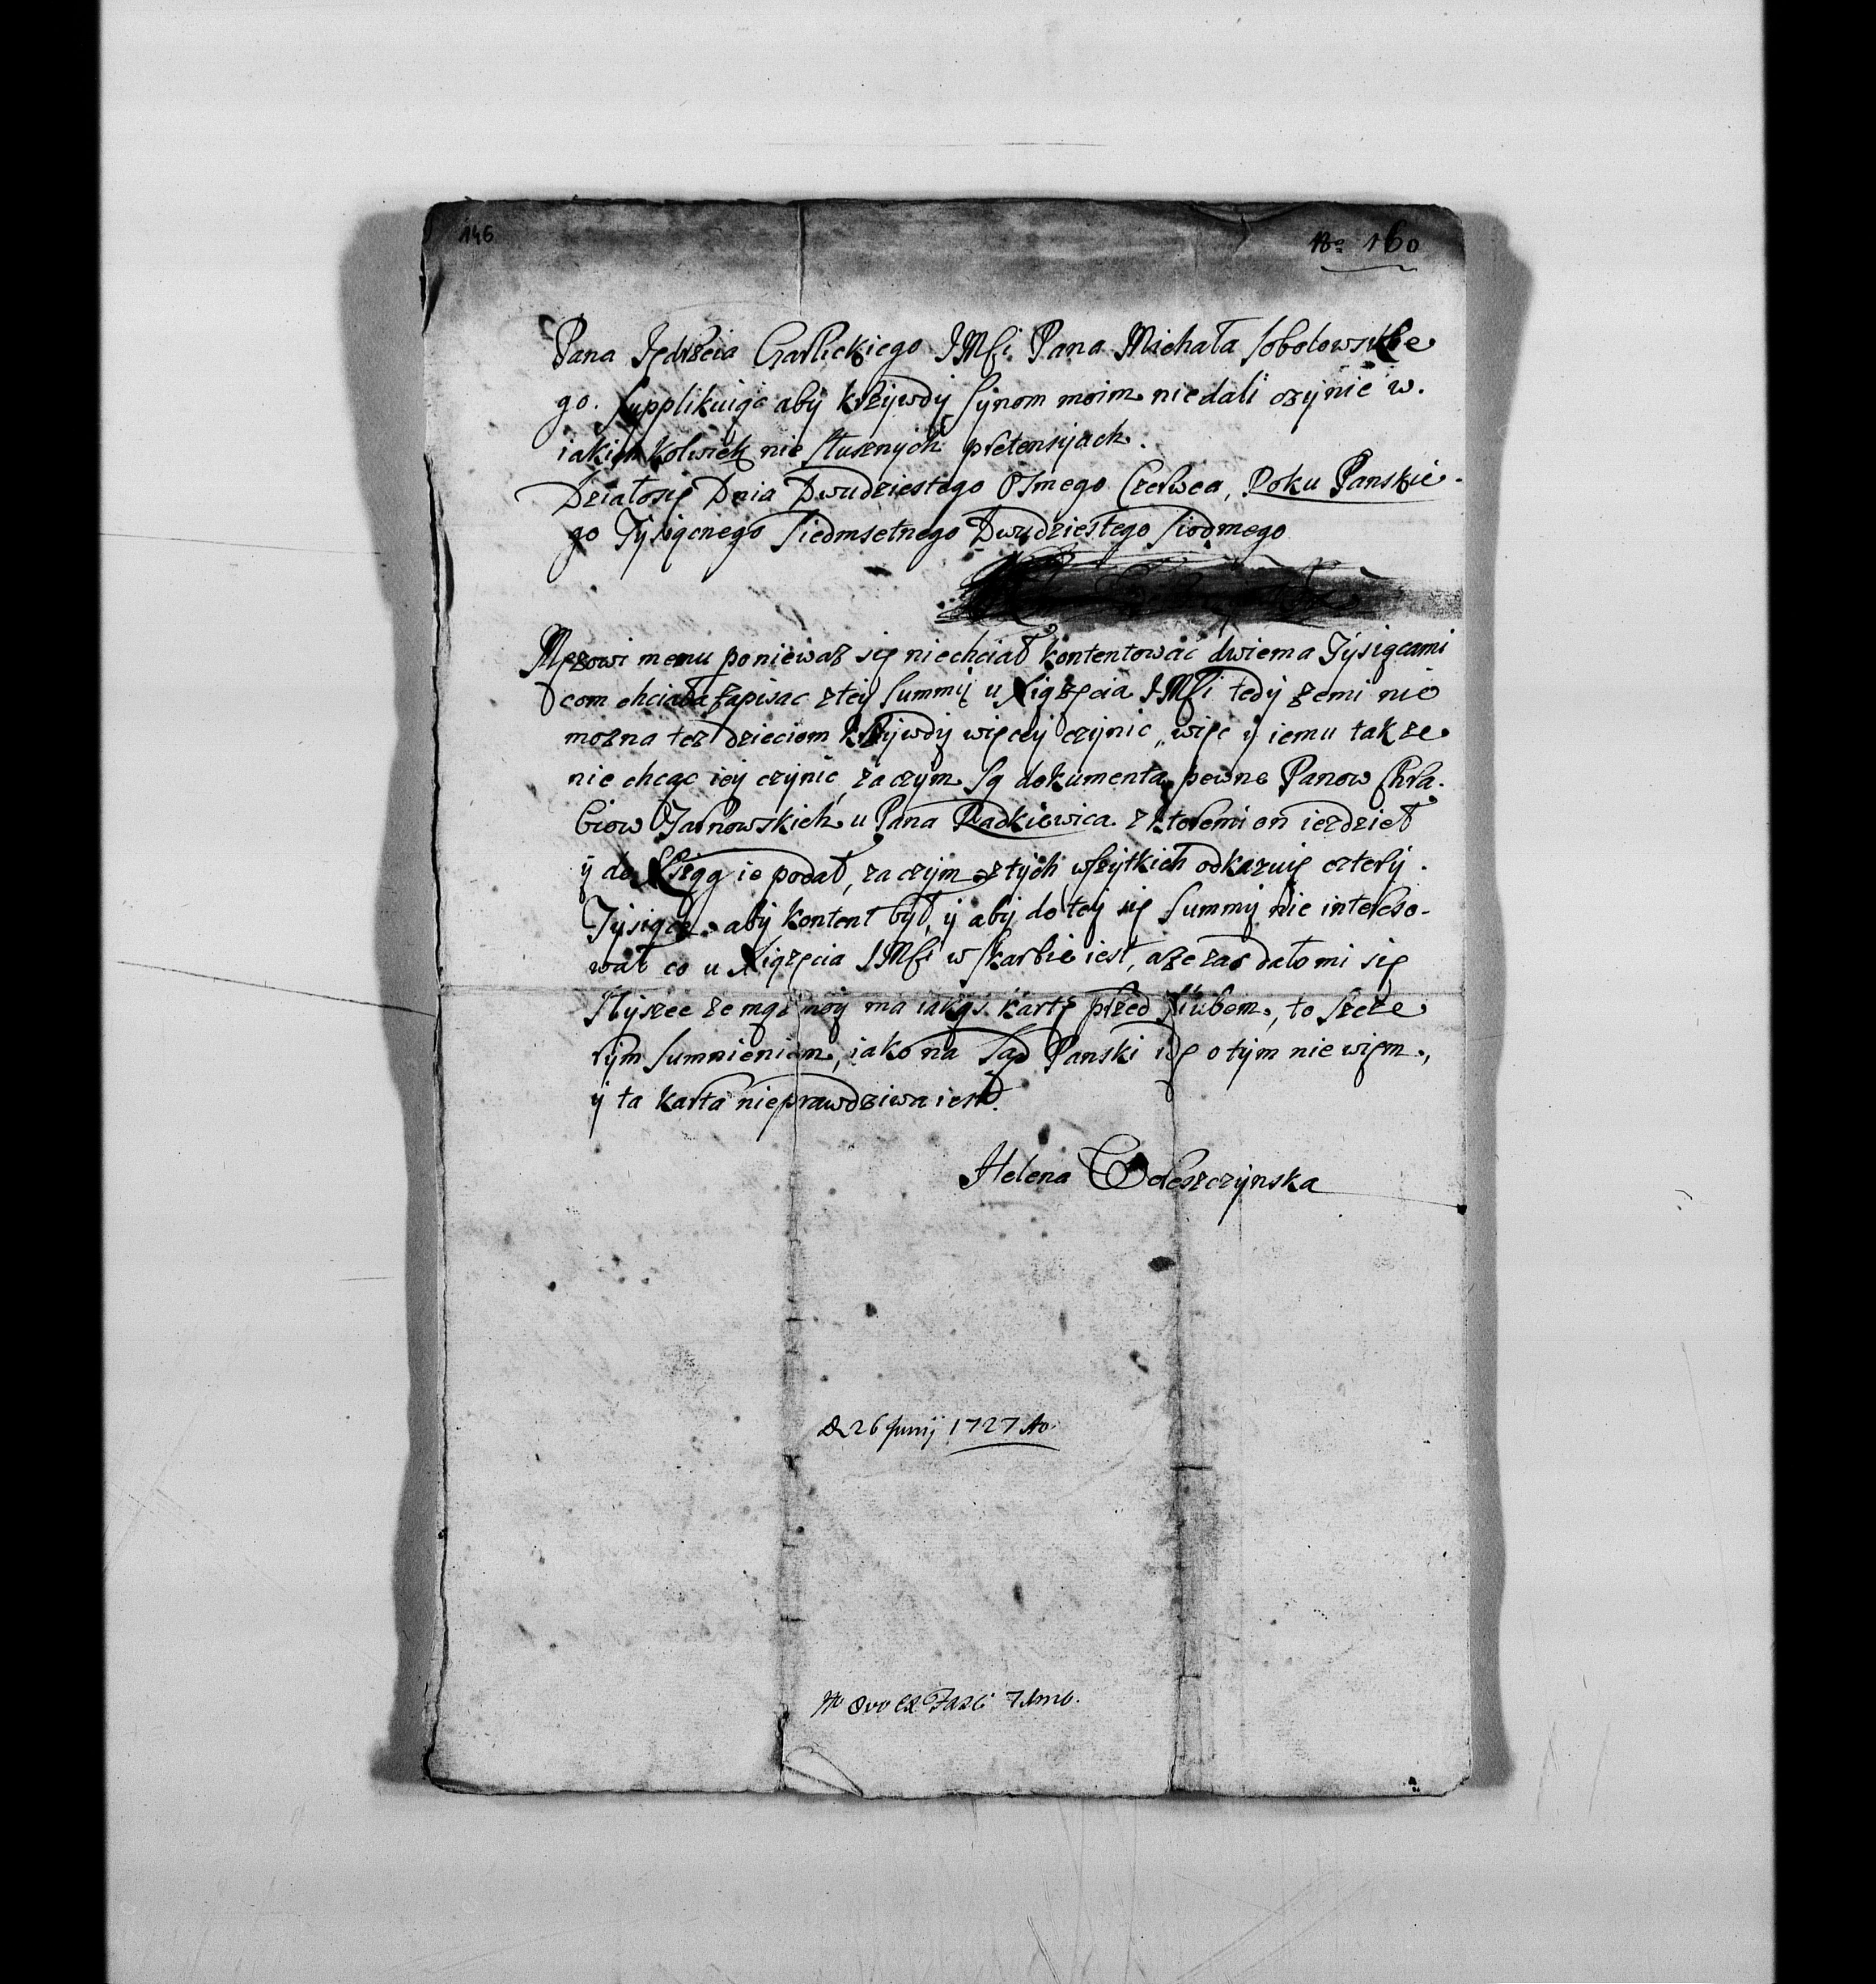 146
No 160
Pana Jędrzeia Garlickiego JMści Pana Michała Sobolowskie
go. Supplikuiąc aby krzywdy Synom moim nie dali czynić w.
iakich kolwiek nie słusznych pretensyach.
Działosię Dnia Dwudziestego Osmego Czerwca, Roku Panskie.
go Tysiącnego Siedmsetnego Dwudziestego Siodmego
Mężowi memu ponieważ się niechciał kontentować dwiema Tysiącami
com chciała zapisac z tey Summy u Xiążęcia JMści tedy że mi nie
można też dzieciom krzywdy więcey czynic, więc y iemu także
nie chcąc iey czynić, zaczym są dokumenta pewne Panow Chra.
biow Tarnowskich u Pana Radkiewica z ktoremi on iezdzieł
y do Xiąg ie podał, zaczym z tych wszytkich odkazuię cztery.
Tysiące aby kontent był, y aby do tey się Summy nie intereso-
wał co u Xiążęcia JMści w skarbie iest, a że zas dało mi się
słyszec że mąż moy ma iakąs kartę przed slubem, to szcze
rym sumnieniem, iako na Sąd Panski idę o tym nie wiem,
y ta karta nieprawdziwa iest.
Helena Coleszczynska
26 Junij 1727 Ao.